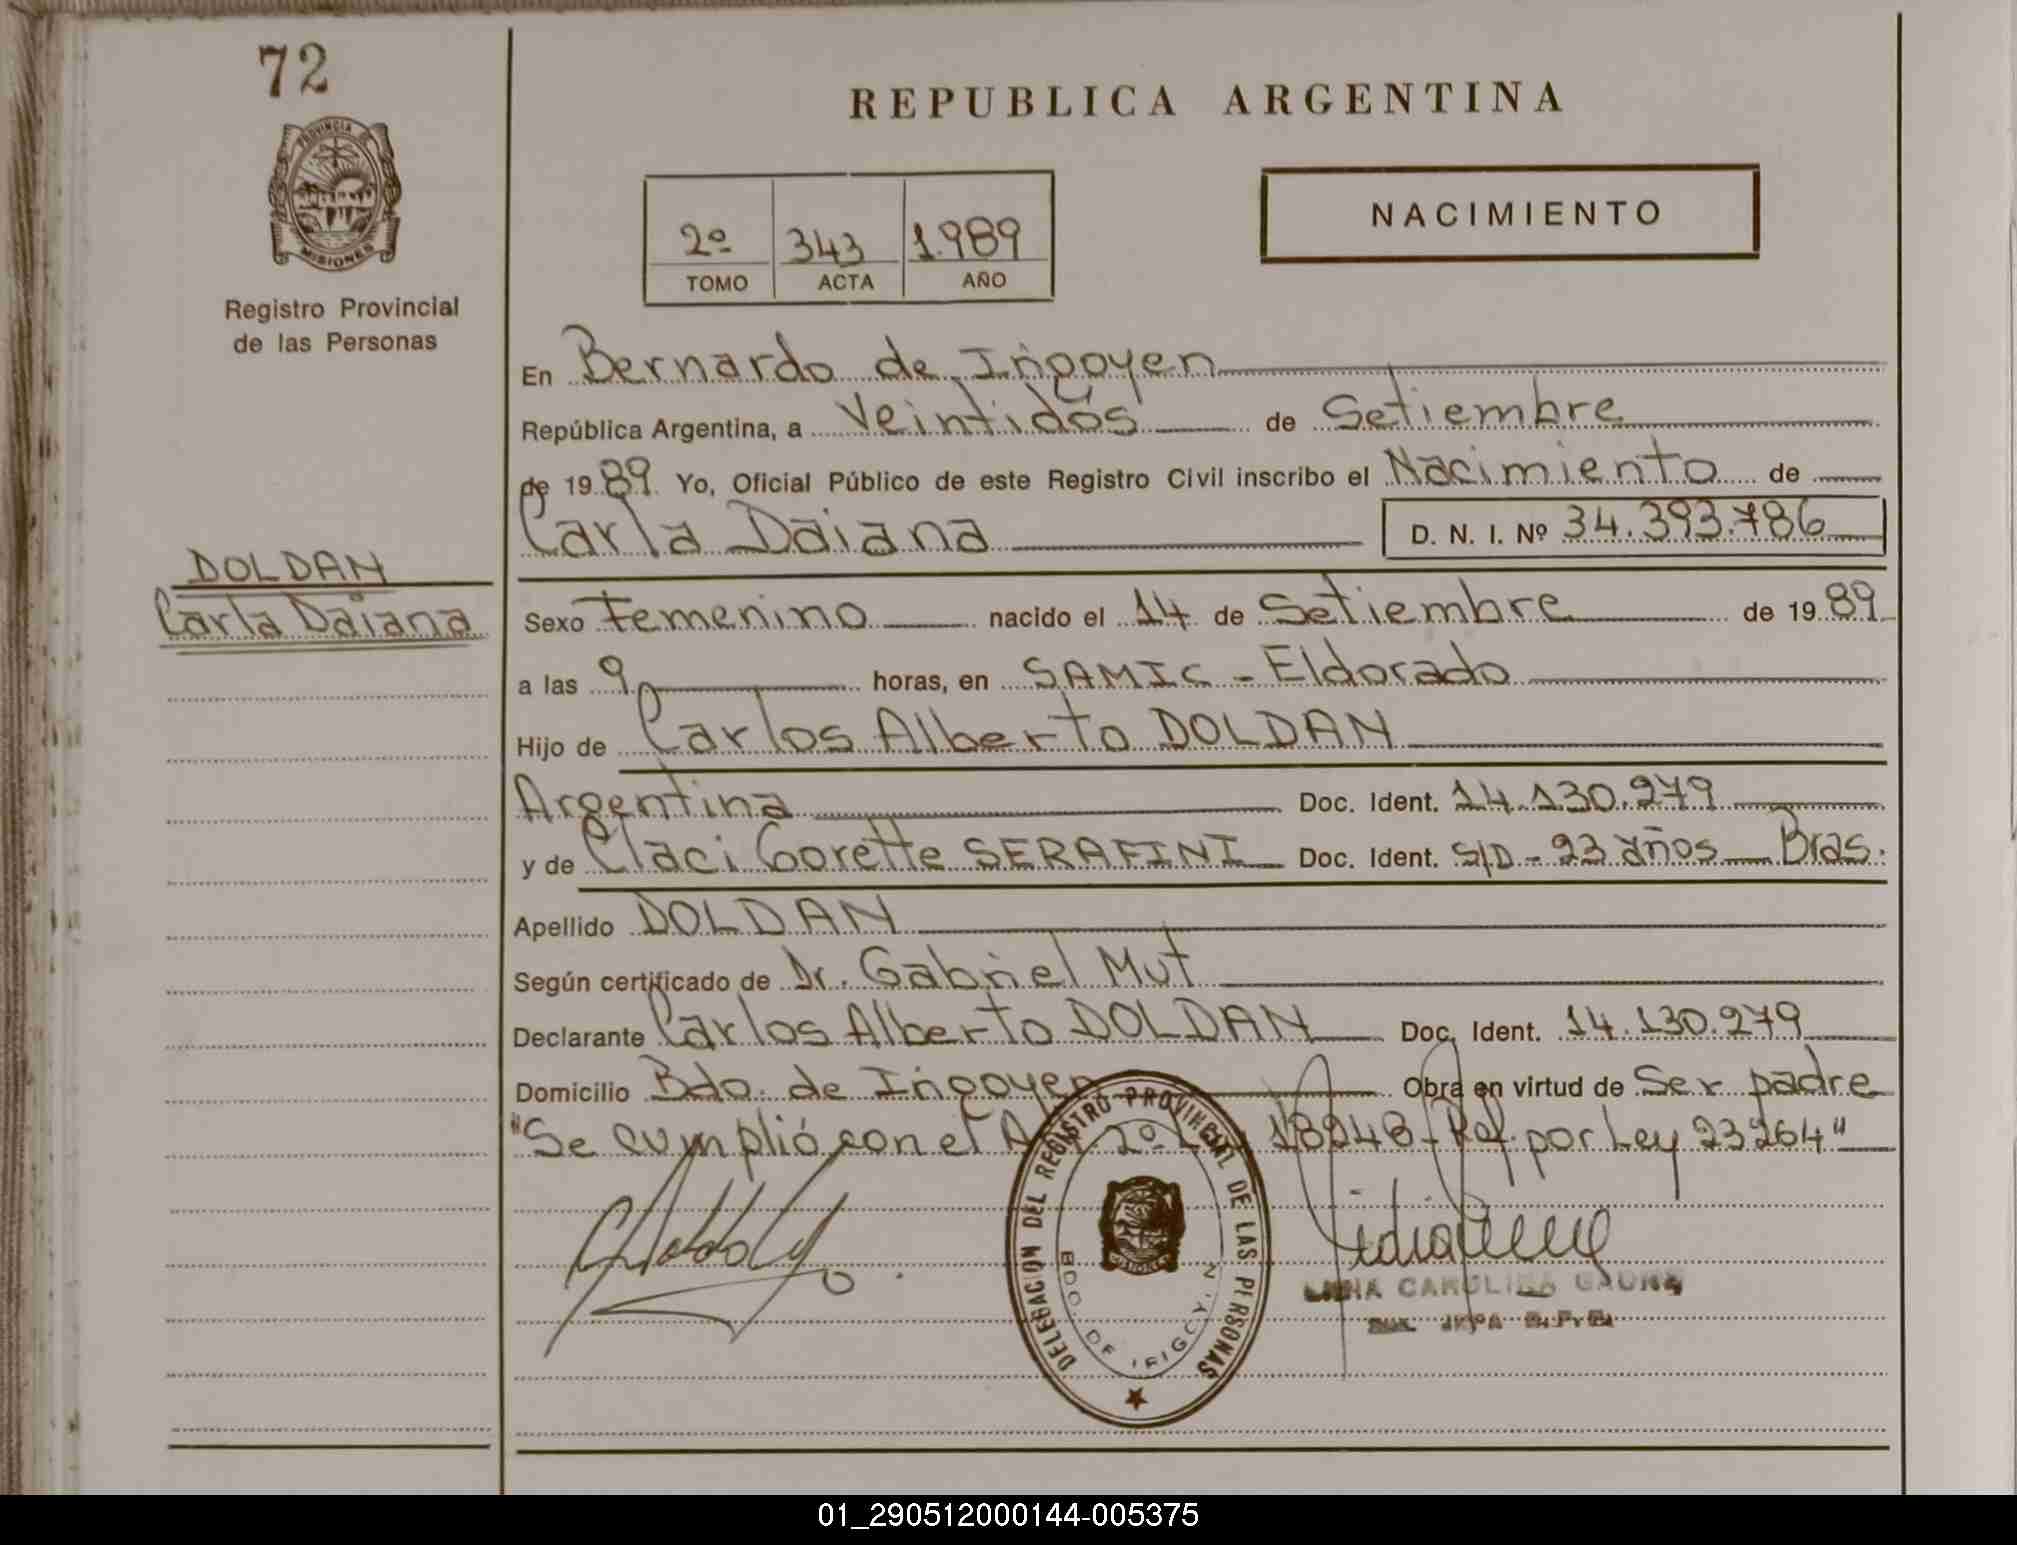 72
PROVINCIA DE
MISIONES
Registro Provincial
de las Personas
DOLDAN
Carla Daiana
REPUBLICA ARGENTINA
2º 343 1.989
TOMO ACTA AÑO
NACIMIENTO
En Bernardo de Irigoyen
República Argentina, a Veintidós de Setiembre
de 1989 Yo, Oficial Público de este Registro Civil inscribo el Nacimiento de
Carla Daiana D. N. I. Nº 34.393.786
Sexo Femenino nacido el 14 de Setiembre de 1989
a las 9 horas, en SAMIC - Eldorado
Hijo de Carlos Alberto DOLDAN
Argentina Doc. Ident. 14.130.279
y de Claci Gorette SERAFINI Doc. Ident. S/D - 23 años Bras.
Apellido DOLDAN
Según certificado de Dr. Gabriel Mut
Declarante Carlos Alberto DOLDAN Doc. Ident. 14.130.279
Domicilio Bdo. de Irigoyen Obra en virtud de Ser padre
"Se cumplió con el 2º 18248 - Ref. por Ley 23264"
DELEGACION DEL REGISTRO PROVINCIAL DE LAS PERSONAS
BDO. DE IRIGOYEN
MISIONES
CAROLINA
01_290512000144-005375